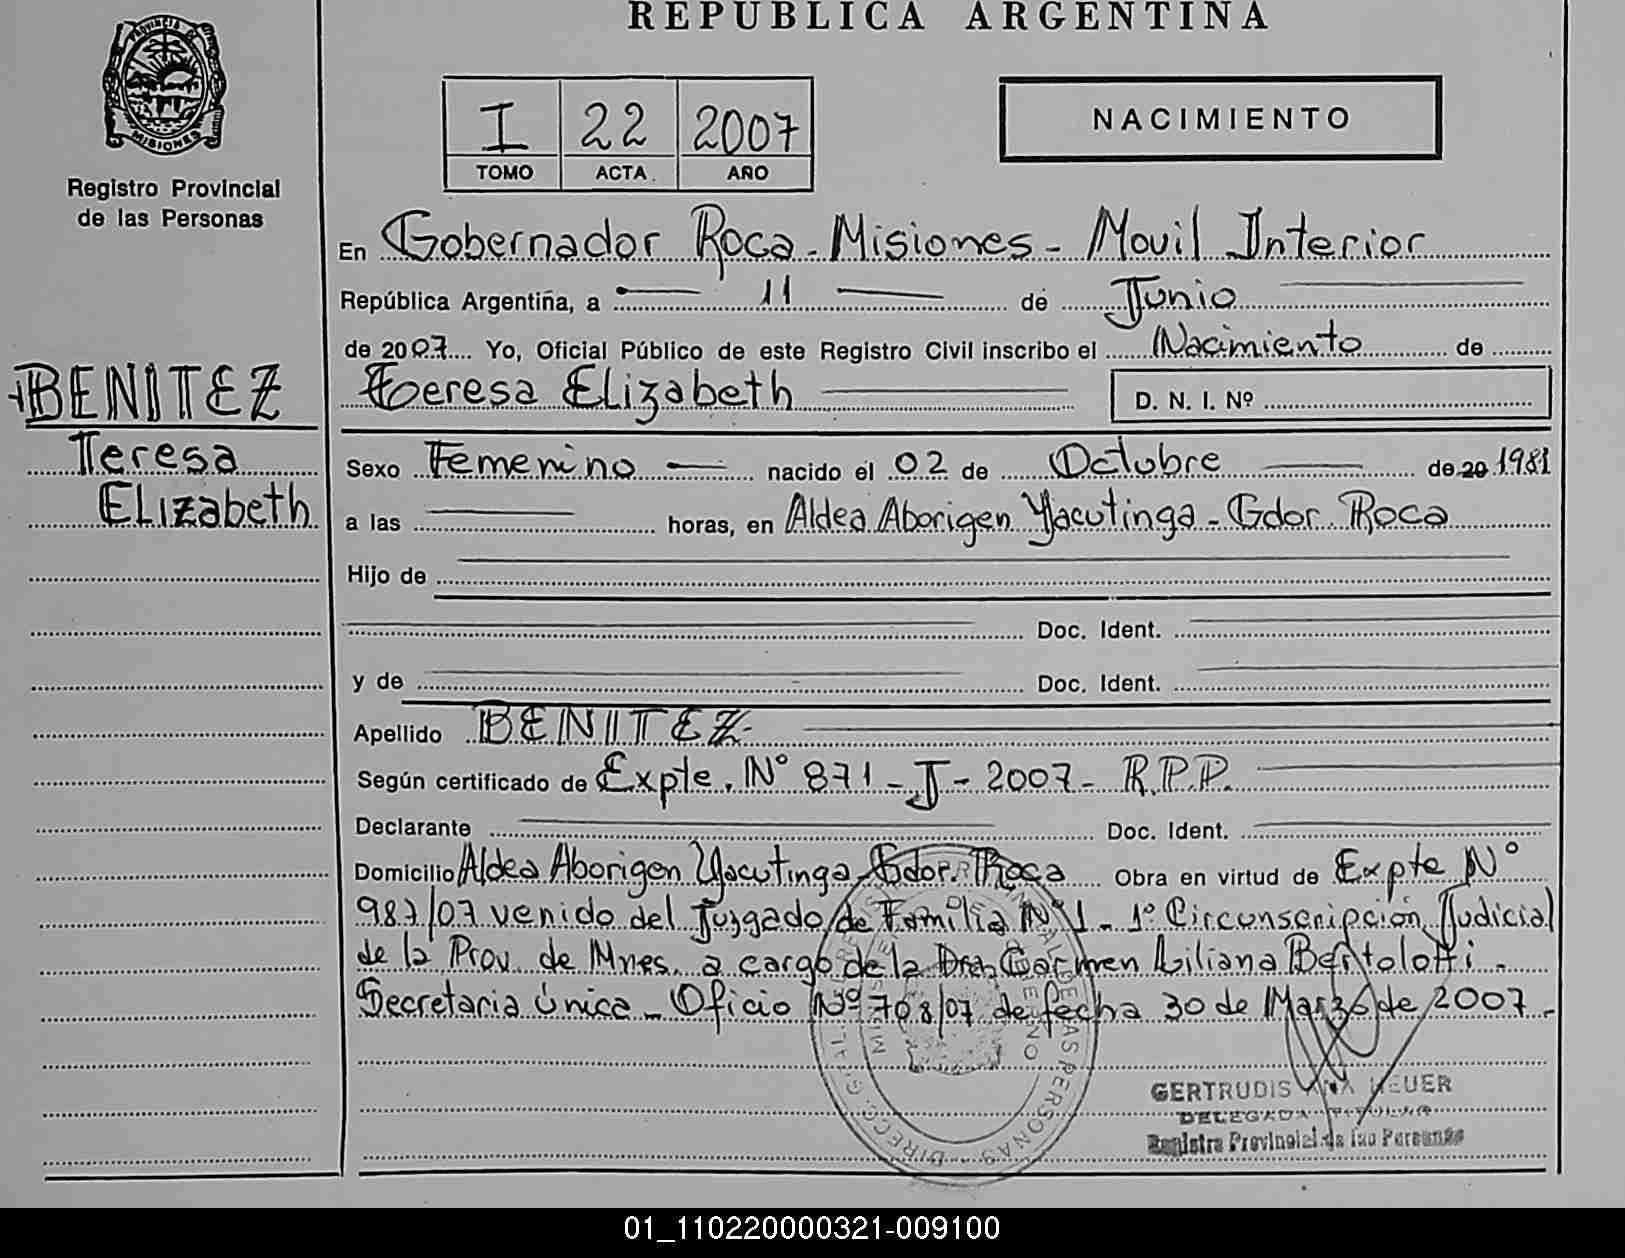 REPUBLICA ARGENTINA
PROVINCIA DE
MISIONES
Registro Provincial
de las Personas
I 22 2007
TOMO ACTA AÑO
NACIMIENTO
En Gobernador Roca - Misiones - Movil Interior
República Argentina, a 11 de Junio
de 2007 Yo, Oficial Público de este Registro Civil inscribo el Nacimiento de
Teresa Elizabeth D. N. I. Nº
BENITEZ
Teresa
Elizabeth
Sexo Femenino nacido el 02 de Octubre de 20 1981
a las horas, en Aldea Aborigen Yacutinga - Gdor Roca
Hijo de
Doc. Ident.
y de Doc. Ident.
Apellido BENITEZ
Según certificado de Expte. Nº 871 - J - 2007 - R.P.P.
Declarante Doc. Ident.
Domicilio Aldea Aborigen Yacutinga - Gdor. Roca Obra en virtud de Expte Nº
987/07 venido del Juzgado de Familia Nº 1 - 1º Circunscripción Judicial
de la Prov. de Mnes. a cargo de la Dra. Carmen Liliana Bertolotti -
Secretaria única - Oficio Nº 708/07 de fecha 30 de Marzo de 2007 -
GERTRUDIS ANA HEUER
DELEGADA TITULAR
Registro Provincial de las Personas
01_110220000321-009100